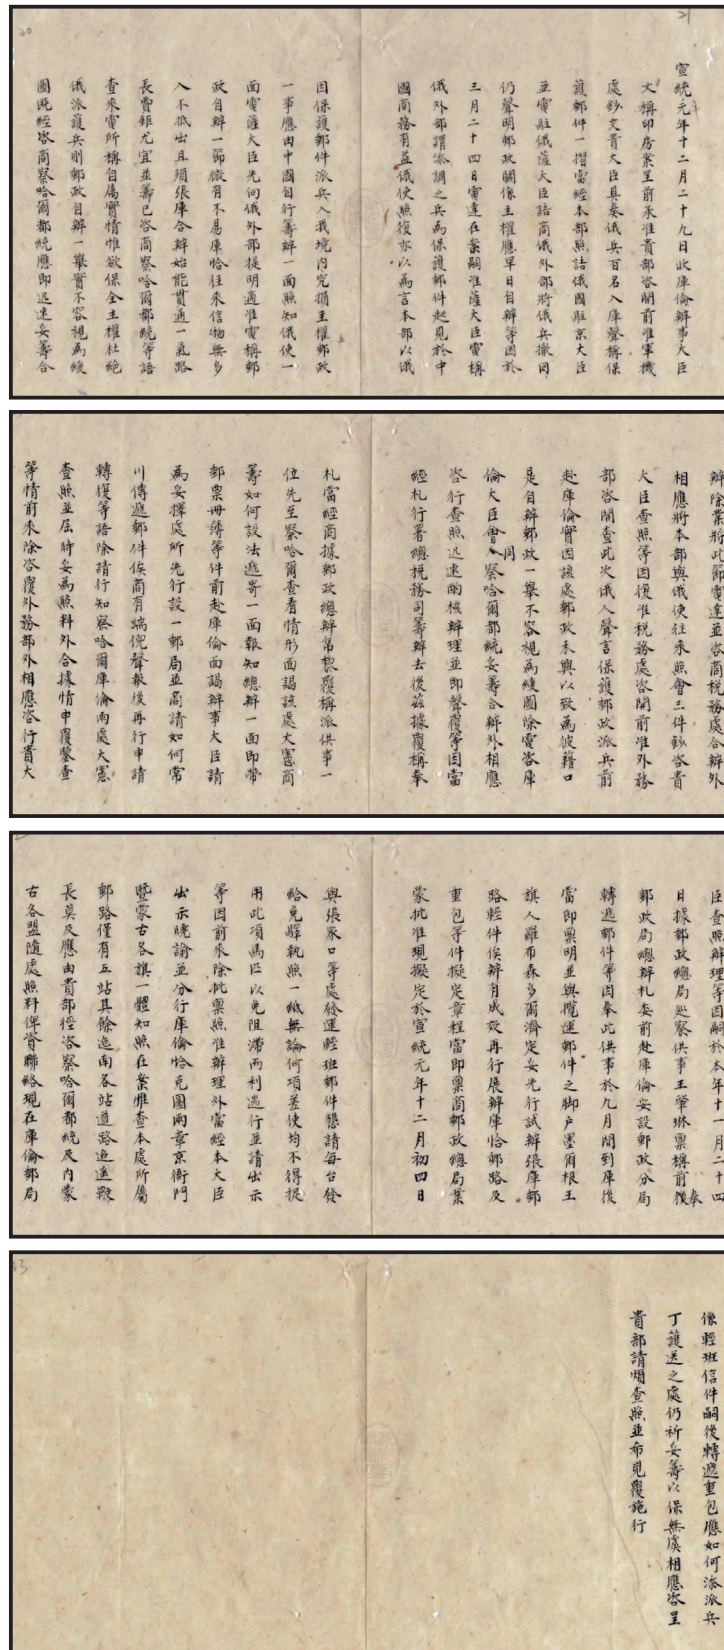 宣統元年十二月二十九日收庫倫辦事大臣
文稱印房案呈前承准貴部咨開前准軍機
處鈔交貴大臣具奏俄兵百名入庫聲稱保
護郵件一摺當經本部照詰俄國駐京大臣
並電駐俄薩大臣詰商俄外部將俄兵撤回
仍聲明郵政關係主權應早日自辦等因於
三月二十四日電達在案嗣准薩大臣電稱
俄外部謂添調之兵為保護郵件起見於中
國商務有益俄使照復亦以為言本部以俄
因保護郵件派兵入我境內究損主權郵政
一事應由中國自行籌辦一面照知俄使一
面電薩大臣先向俄外部提明適准電稱郵
政自辦一節徵有不易庫恰往來信物無多
入不抵出且須張庫合辦始能貫通一氣路
長費鉅尤宜並籌已咨商察哈爾都統等語
查來電所稱自屬實情惟欲保全主權杜絕
俄派護兵則郵政自辦一舉實不容視為緩
圖既經咨商察哈爾都統應即迅速妥籌合
辦除業將此節電達並咨商稅務處合辦外
相應將本部與俄使往來照會三件鈔咨貴
大臣查照等因復准稅務處咨開前准外務
部咨開查此次俄人聲言保護郵政派兵前
赴庫倫實因該處郵政未興以致為彼藉口
是自辦郵政一舉不容視為緩圖除電咨庫
倫大臣會同察哈爾都統妥籌合辦外相應
咨行查照迅速酌核辦理並即聲覆等因當
經札行署總稅務司籌辦去後茲據覆稱奉
札當經商據郵政總辦帛黎覆稱派供事一
位先至察哈爾查看情形面謁該處大憲商
籌如何設法遞寄一面報知總辦一面即帶
郵票冊簿等件前赴庫倫面謁辦事大臣請
為妥擇處所先行設一郵局並商請如何常
川傳遞郵件俟商有端倪聲報後再行申請
轉復等語除請行知察哈爾庫倫兩處大憲
查照並屆時妥為照料外合據情申覆鑒查
等情前來除咨覆外務部外相應咨行貴大
臣查照辦理等因嗣於本年十一月二十四
日據郵政總局巡察供事王肇琳稟稱前後奉
郵政局總辦札委前赴庫倫安設郵政分局
轉遞郵件等因奉此供事於九月間到庫後
當即稟明並與攬運郵件之腳戶墨爾根王
旗人羅布森多爾濟定妥先行試辦張庫郵
路輕件俟辦有成效再行展辦庫恰郵路及
重包等件擬定章程當即稟商郵政總局業
蒙批准現擬定於宣統元年十二月初四日
與張家口等處發運輕班郵件懇請每台發
給免驛執照一紙無論何項差使均不得提
用此項馬匹以免阻滯而利遄行並請出示
等因前來除批稟照准辦理外當經本大臣
出示曉諭並分行庫倫恰克圖兩章京衙門
暨蒙古各旗一體知照在案惟查本處所屬
郵路僅有五站其餘迤南各站道路迤遥鞭
長莫及應由貴部徑咨察哈爾都統及內蒙
古各盟隨處照料俾資聯絡現在庫倫郵局
係輕班信件嗣後轉遞重包應如何添派兵
丁護送之處仍祈妥籌以保無虞相應咨呈
貴部請煩查照並布見覆施行